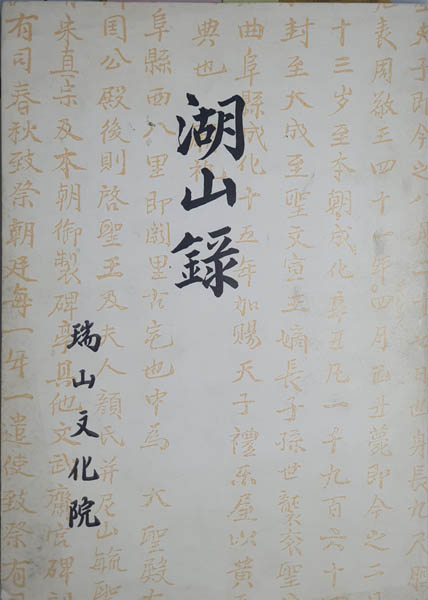 夫子即今之八月二十七日也身長九尺
周敬王四十一年四月己丑薨即今之二
十三岁至本朝成化辛丑凡一千九百六十
封至大成至聖文宣王嫡長子孫世襲衮聖
曲阜縣成化十五年加賜天子禮樂屋以黃
典也
湖山錄
阜縣西八里即闕里古宅也中為 大聖殿
國公殿後則啓聖王及夫人顏氏并尼山毓聖
瑞山文化院
宗及本朝御製碑亭與他文武齋官碑
有司春秋致祭朝廷每一年一遣使致祭有